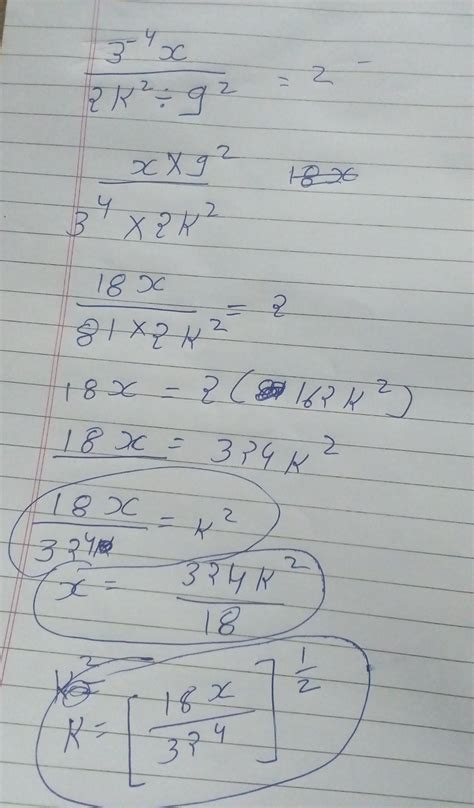 3⁻⁴x / 2K² ÷ 9² = 2
x × 9² / 3⁴ × 2K² 18x
18x / 81 × 2K² = 2
18x = 2(162K²)
18x = 324K²
18x / 324 = K²
x = 324K² / 18
K² =
K = [18x / 324]^1/2